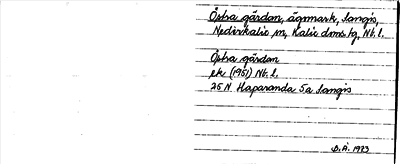 Östra gärdan, ägomark, Sangis,
Nedirkalix sn, Kalix domstg, Nb. l.
Östra gärdan
ek (1951) Nb. l.
25 N Haparanda 5a Sangis
B.Å. 1973